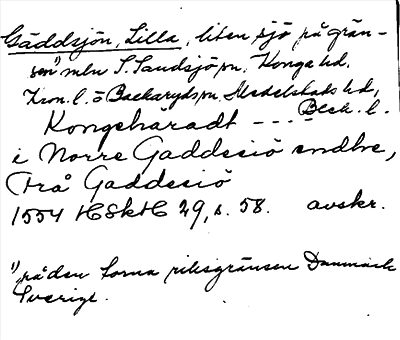 Gäddsjön, Lilla, liten sjö på grän-
sen¹) mln S. Sandsjö sn, Konga hd,
Kron. l. o Backaryds sn, Medelstads hd,
Blek. l.
Kongshäradt ---
i Norre Gaddesiö endhe,
frå Gaddesiö
1554 HSkH 29, s. 58. avskr.
¹) på den forna riksgränsen Danmark
Sverige.